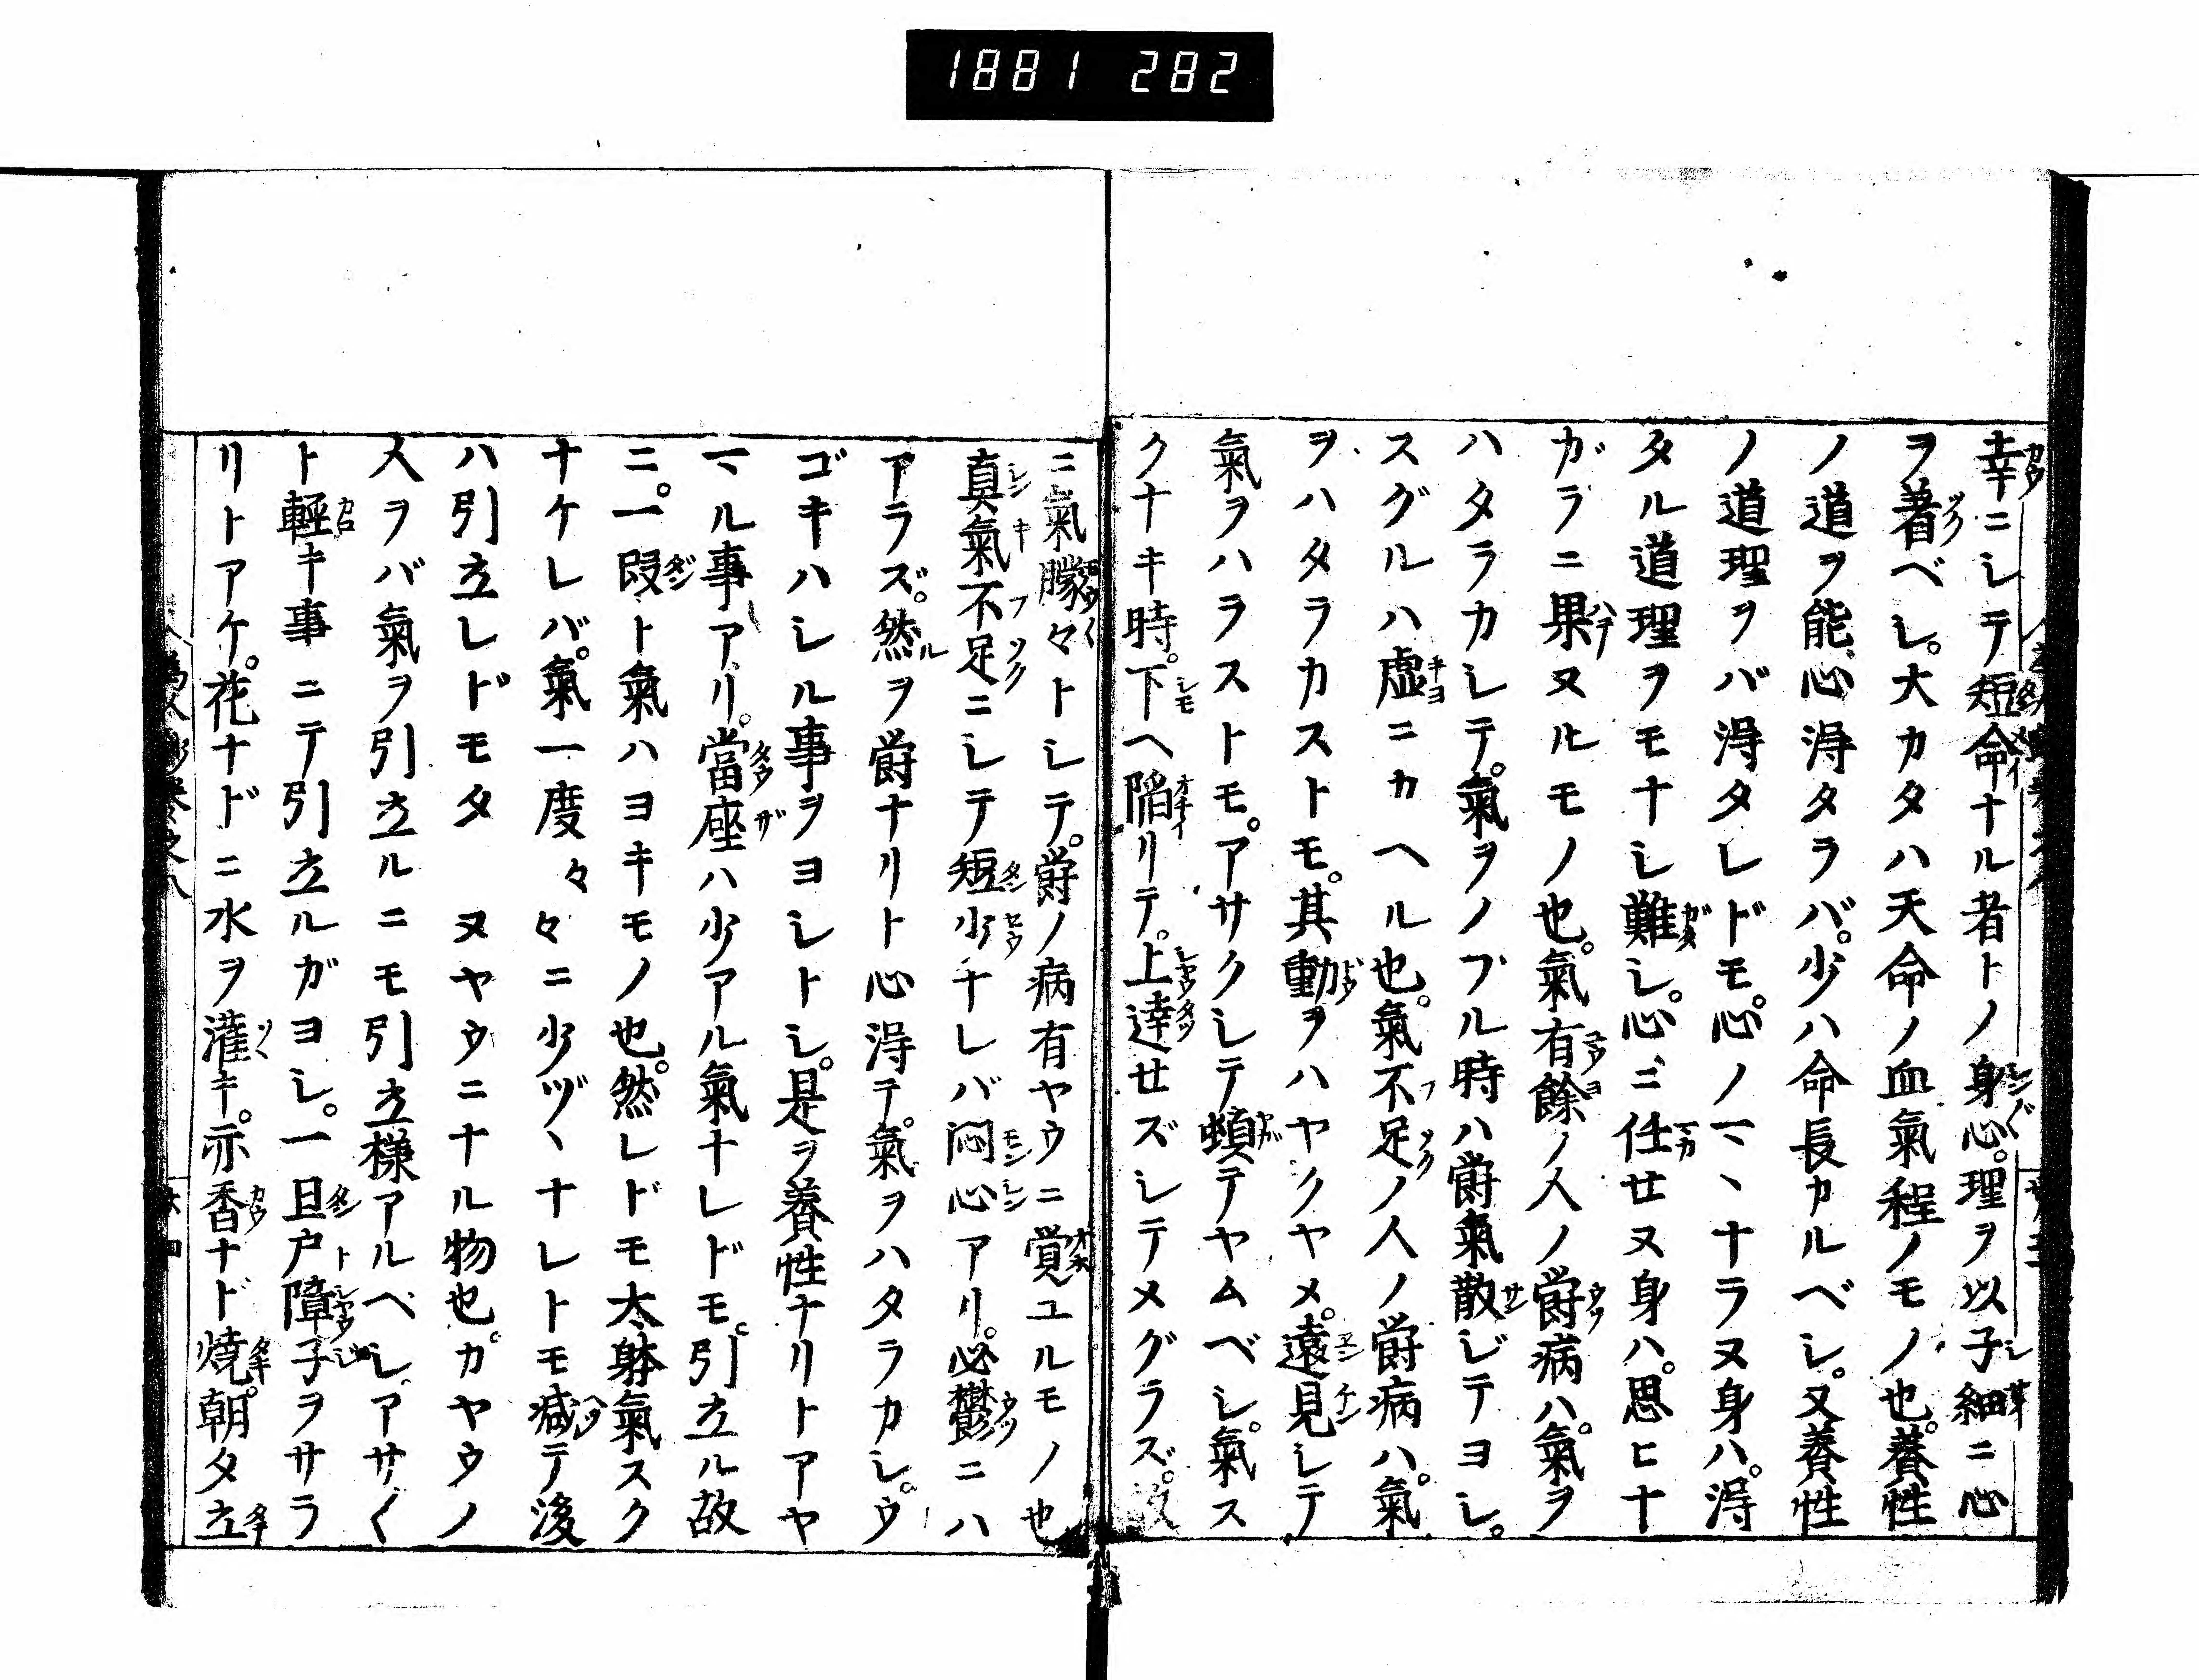 1881 282
幸ニシテ短命ナル者トノ身心。理ヲ以子細ニ心
ヲ著ベシ。大カタハ天命ノ血氣程ノモノ也。養性
ノ道ヲ能心得タラバ。少ハ命長カルベシ。又養性
ノ道理ヲバ得タレドモ。心ノマヽナラヌ身ハ。得
タル道理ヲモナシ難シ。心ニ任セヌ身ハ。思ヒナ
ガラニ果ヌルモノ也。氣有餘ノ人ノ欝病ハ。氣ヲ
ハタラカシテ。氣ヲノブル時ハ欝氣散ジテヨシ。
スグルハ虚ニカヘル也。氣不足ノ人ノ欝病ハ。氣
ヲハタラカストモ。其動ヲハヤクヤメ。遠見シテ
氣ヲハラストモ。アサクシテ頓テヤムベシ。氣ス
クナキ時。下ヘ陥リテ。上達セズシテメグラズ。故
ニ氣朦々トシテ。欝ノ病有ヤウニ覚ユルモノ也
真氣不足ニシテ短少ナレバ悶心アリ。必鬱ニハ
アラズ。然ルヲ欝ナリト心得テ。氣ヲハタラカシ。ウ
ゴキハシル事ヲヨシトシ。是ヲ養性ナリトアヤ
マル事アリ。當座ハ少アル氣ナレドモ。引立ル故
ニ。一段ト氣ハヨキモノ也。然レドモ太躰氣スク
ナケレバ。氣一度々々ニ少ヅヽナレトモ減テ後
ハ引立レドモタヽヌヤウニナル物也。カヤウノ
人ヲバ氣ヲ引立ルニモ引立様アルベシ。アサ〱
ト輕キ事ニテ引立ルガヨシ。一旦戸障子ヲサラ
リトアケ。花ナドニ水ヲ灌キ。亦香ナド焼。朝夕立